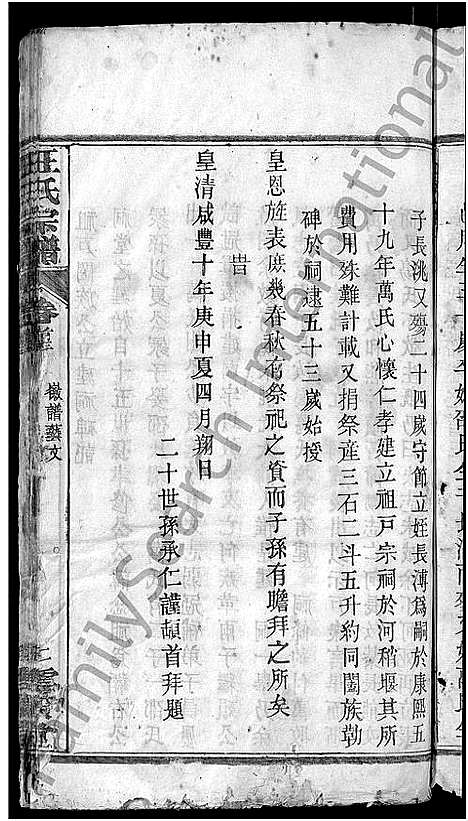 子長洮又殤二十四歲守節立姪長溥爲嗣於康熙五
十九年萬氏心懷仁孝建立祖戸宗祠於河稍堰其所
費用殊難計載又捐祭產三石二斗五升約同闔族勒
碑於祠逮五十三歲始授
皇恩旌表庶幾春秋有祭祀之資而子孫有瞻拜之所矣
旹
皇清咸豐十年庚申夏四月翔日
二十世孫承仁謹頓首拜題
汪氏宗譜
卷首
徽譜藝文
FamilySearch International